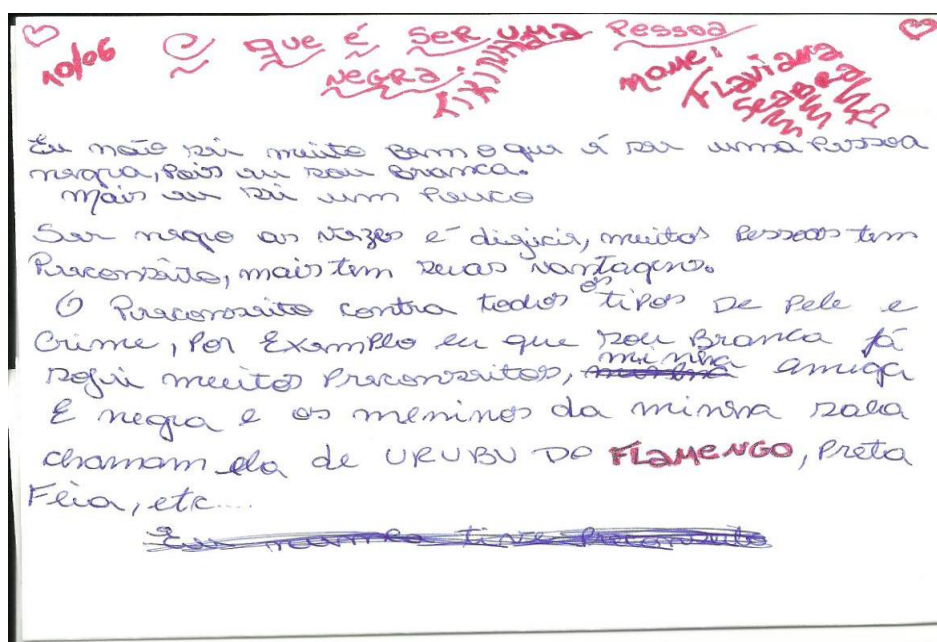 10/06 O que é ser uma pessoa
negra. Nome: Flaviana
Eu não sei muito bem o que é ser uma pessoa
negra, pois eu sou Branca.
Mais eu sei um pouco
Ser negro as vezes é dificir, muitos pessoas tem
Preconseito, mais tem suas vantagens.
O Preconseito contra todos os tipos De Pele e
Crime, Por Exemplo eu que sou Branca já
sofri muitos Preconseitos, minha amiga
E negra e os meninos da minha sala
chamam ela de URUBU DO FLAMENGO, Preta
Feia, etc....
Eu nunca tive Preconseito